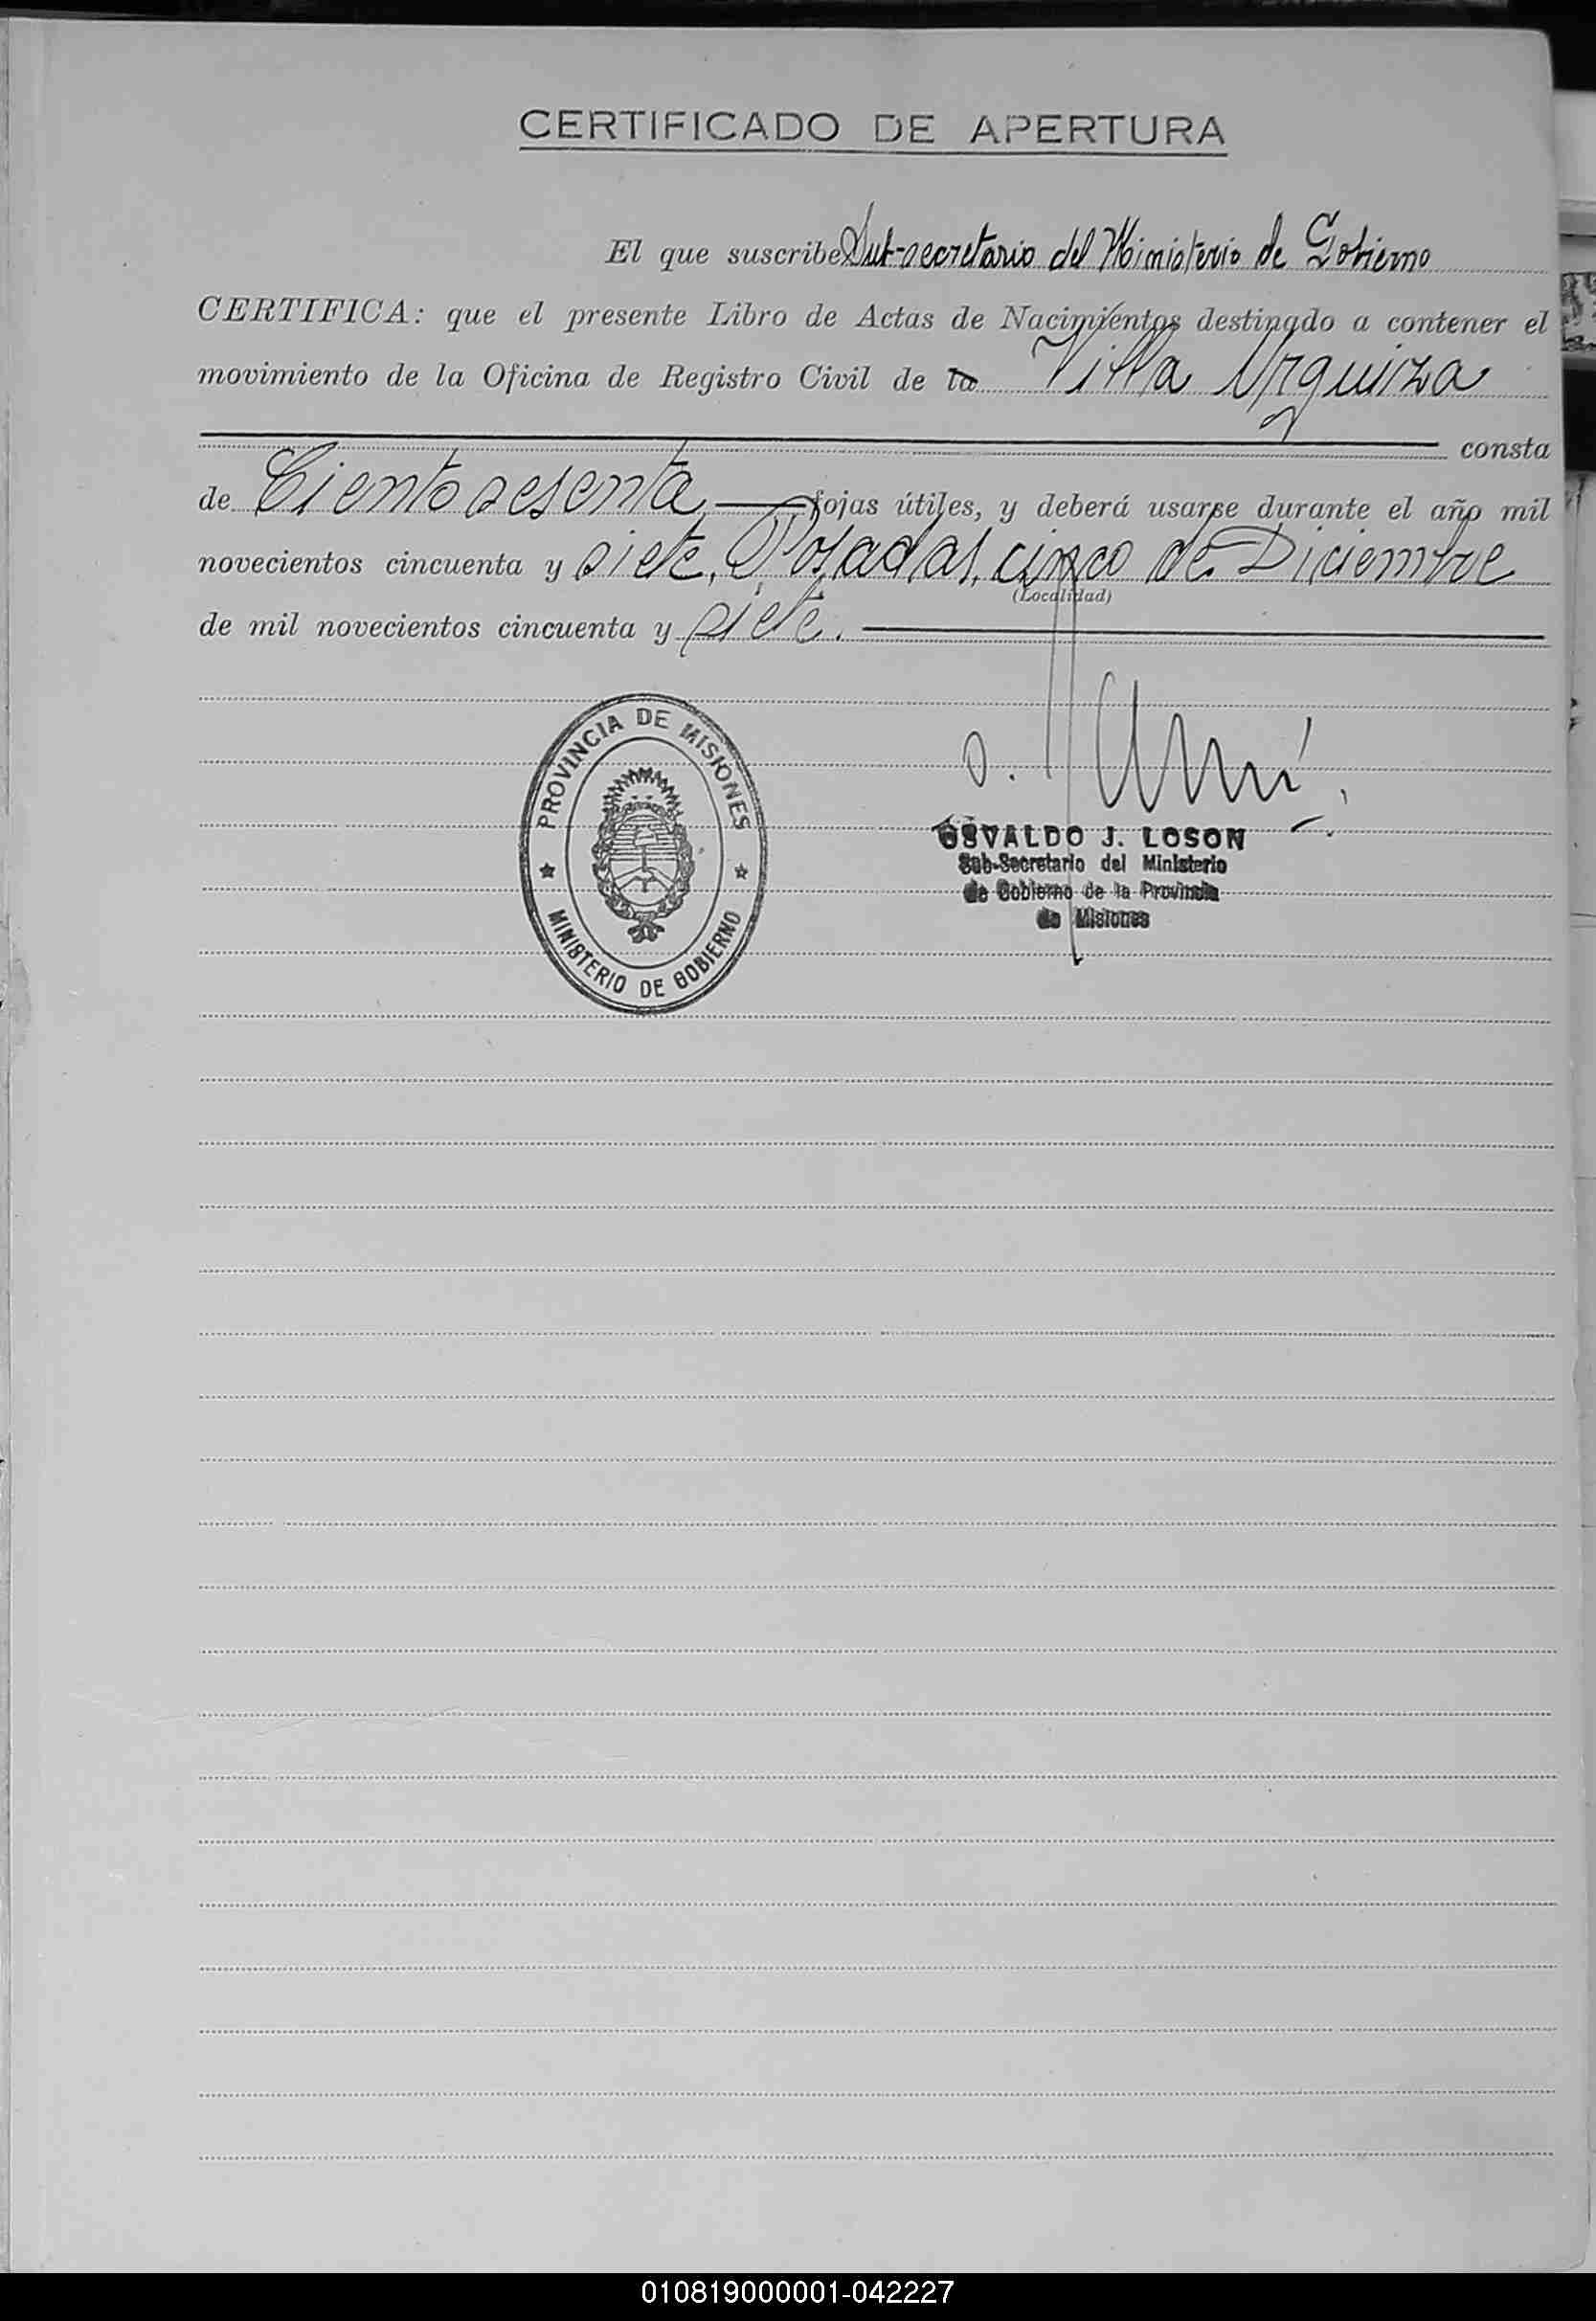 CERTIFICADO DE APERTURA
El que suscribe Sub-secretario del Ministerio de Gobierno
CERTIFICA: que el presente Libro de Actas de Nacimientos destinado a contener el
movimiento de la Oficina de Registro Civil de la Villa Urquiza
consta
de Ciento sesenta fojas útiles, y deberá usarse durante el año mil
novecientos cincuenta y siete. Posadas, cinco de Diciembre
(Localidad)
de mil novecientos cincuenta y siete.
PROVINCIA DE MISIONES
MINISTERIO DE GOBIERNO
OSVALDO J. LOSON
Sub-Secretario del Ministerio
de Gobierno de la Provincia
de Misiones
010819000001-042227